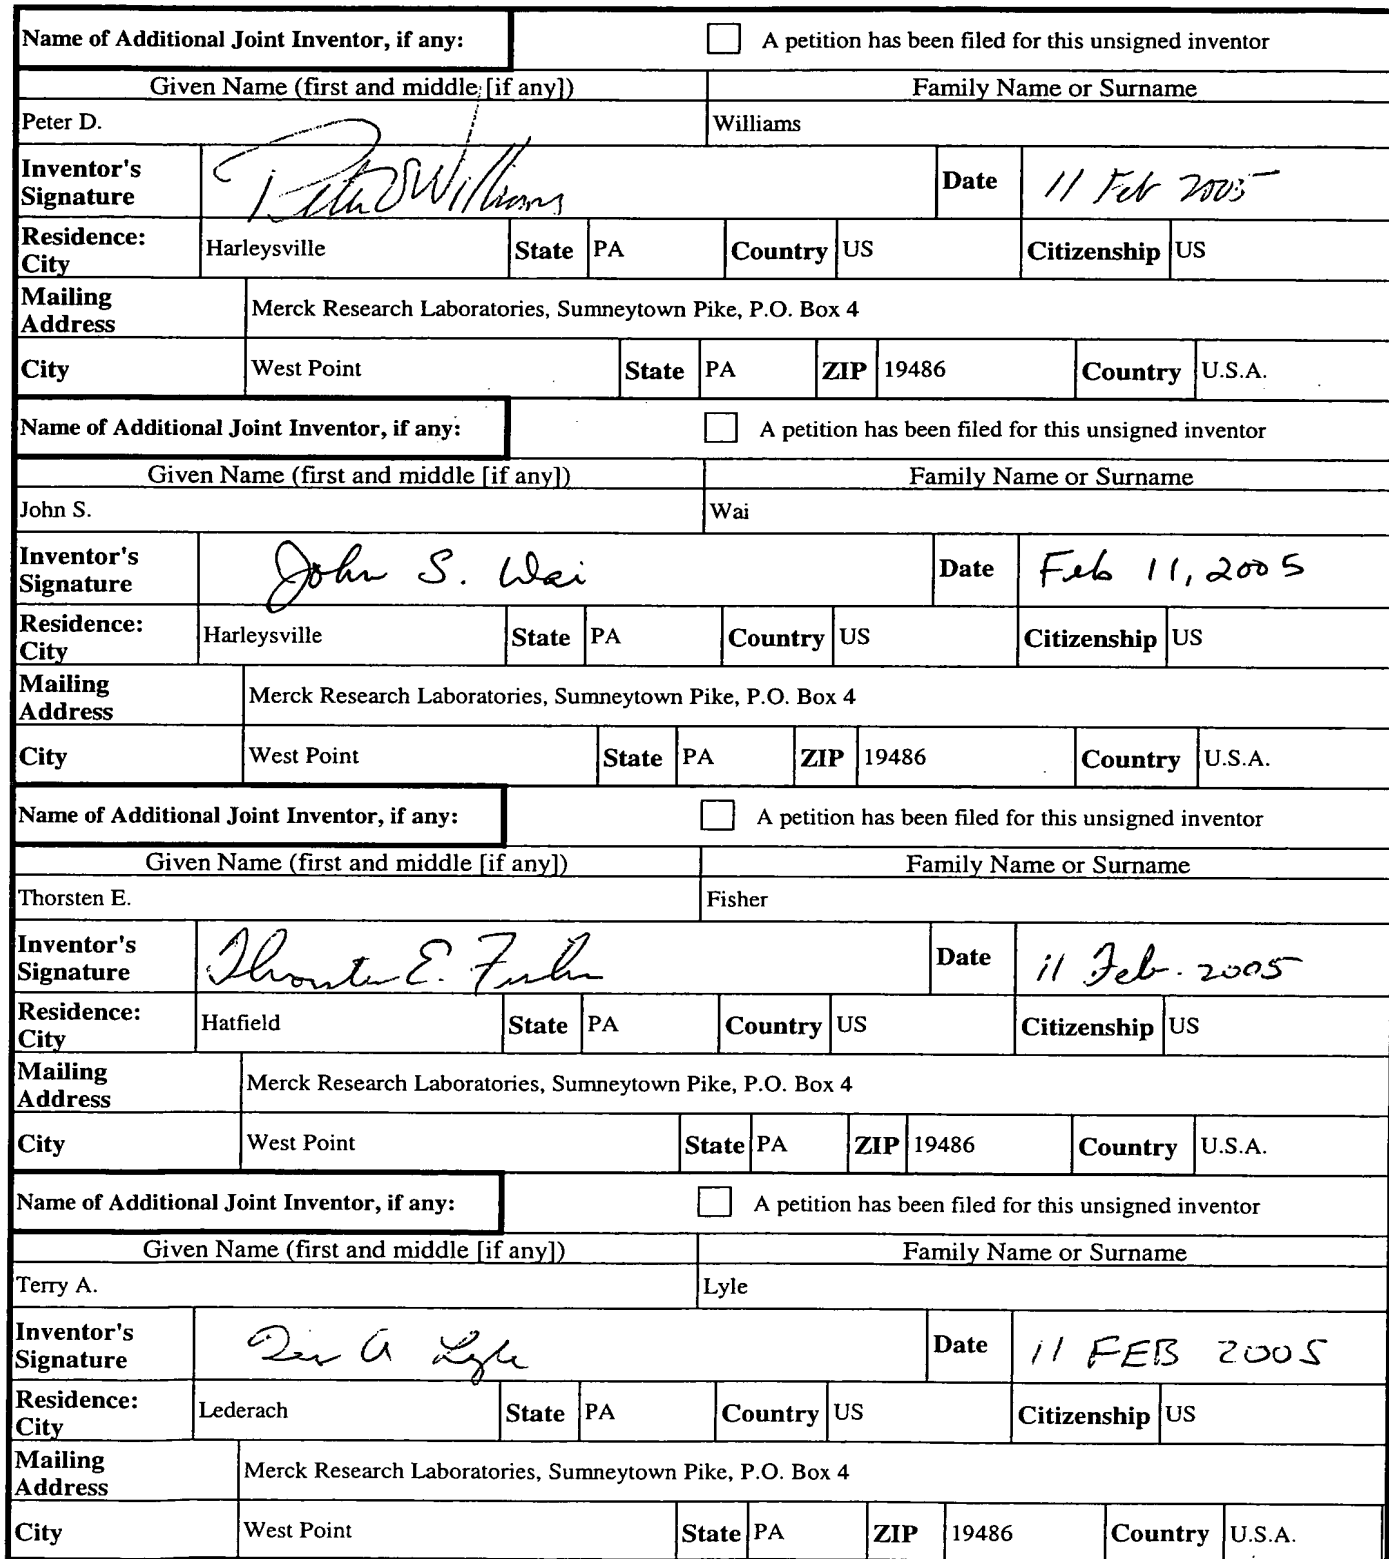 Name of Additional Joint Inventor, if any: A petition has been filed for this unsigned inventor
Given Name (first and middle [if any]) Family Name or Surname
Peter D. Williams
Inventor's Signature Peter D Williams Date 11 Feb 2005
Residence: City Harleysville State PA Country US Citizenship US
Mailing Address Merck Research Laboratories, Sumneytown Pike, P.O. Box 4
City West Point State PA ZIP 19486 Country U.S.A.
Name of Additional Joint Inventor, if any: A petition has been filed for this unsigned inventor
Given Name (first and middle [if any]) Family Name or Surname
John S. Wai
Inventor's Signature John S. Wai Date Feb 11, 2005
Residence: City Harleysville State PA Country US Citizenship US
Mailing Address Merck Research Laboratories, Sumneytown Pike, P.O. Box 4
City West Point State PA ZIP 19486 Country U.S.A.
Name of Additional Joint Inventor, if any: A petition has been filed for this unsigned inventor
Given Name (first and middle [if any]) Family Name or Surname
Thorsten E. Fisher
Inventor's Signature Thorsten E. Fisher Date 11 Feb. 2005
Residence: City Hatfield State PA Country US Citizenship US
Mailing Address Merck Research Laboratories, Sumneytown Pike, P.O. Box 4
City West Point State PA ZIP 19486 Country U.S.A.
Name of Additional Joint Inventor, if any: A petition has been filed for this unsigned inventor
Given Name (first and middle [if any]) Family Name or Surname
Terry A. Lyle
Inventor's Signature A Lyle Date 11 FEB 2005
Residence: City Lederach State PA Country US Citizenship US
Mailing Address Merck Research Laboratories, Sumneytown Pike, P.O. Box 4
City West Point State PA ZIP 19486 Country U.S.A.